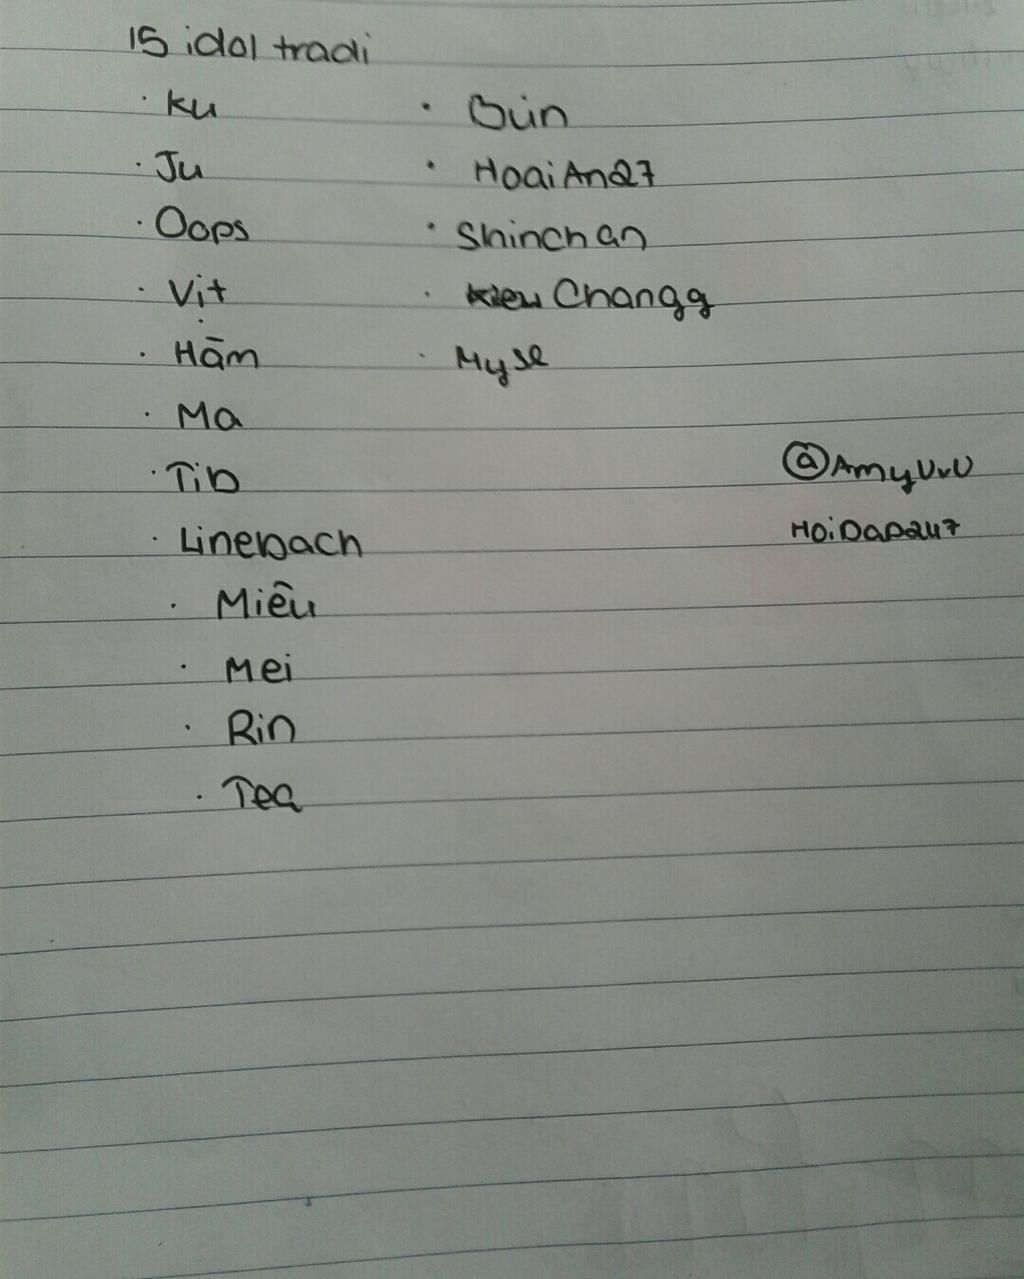 15 idol tradi
· Ku
· Ju
· Oops
· Vịt
· Hâm
· Ma
· Tib
· Linebach
· Miêu
· Mei
· Rin
· Tea
· Bún
· HoaiAn27
· Shinchan
· Kieu Changg
· Myse
@AmyUvU
HoiDap247